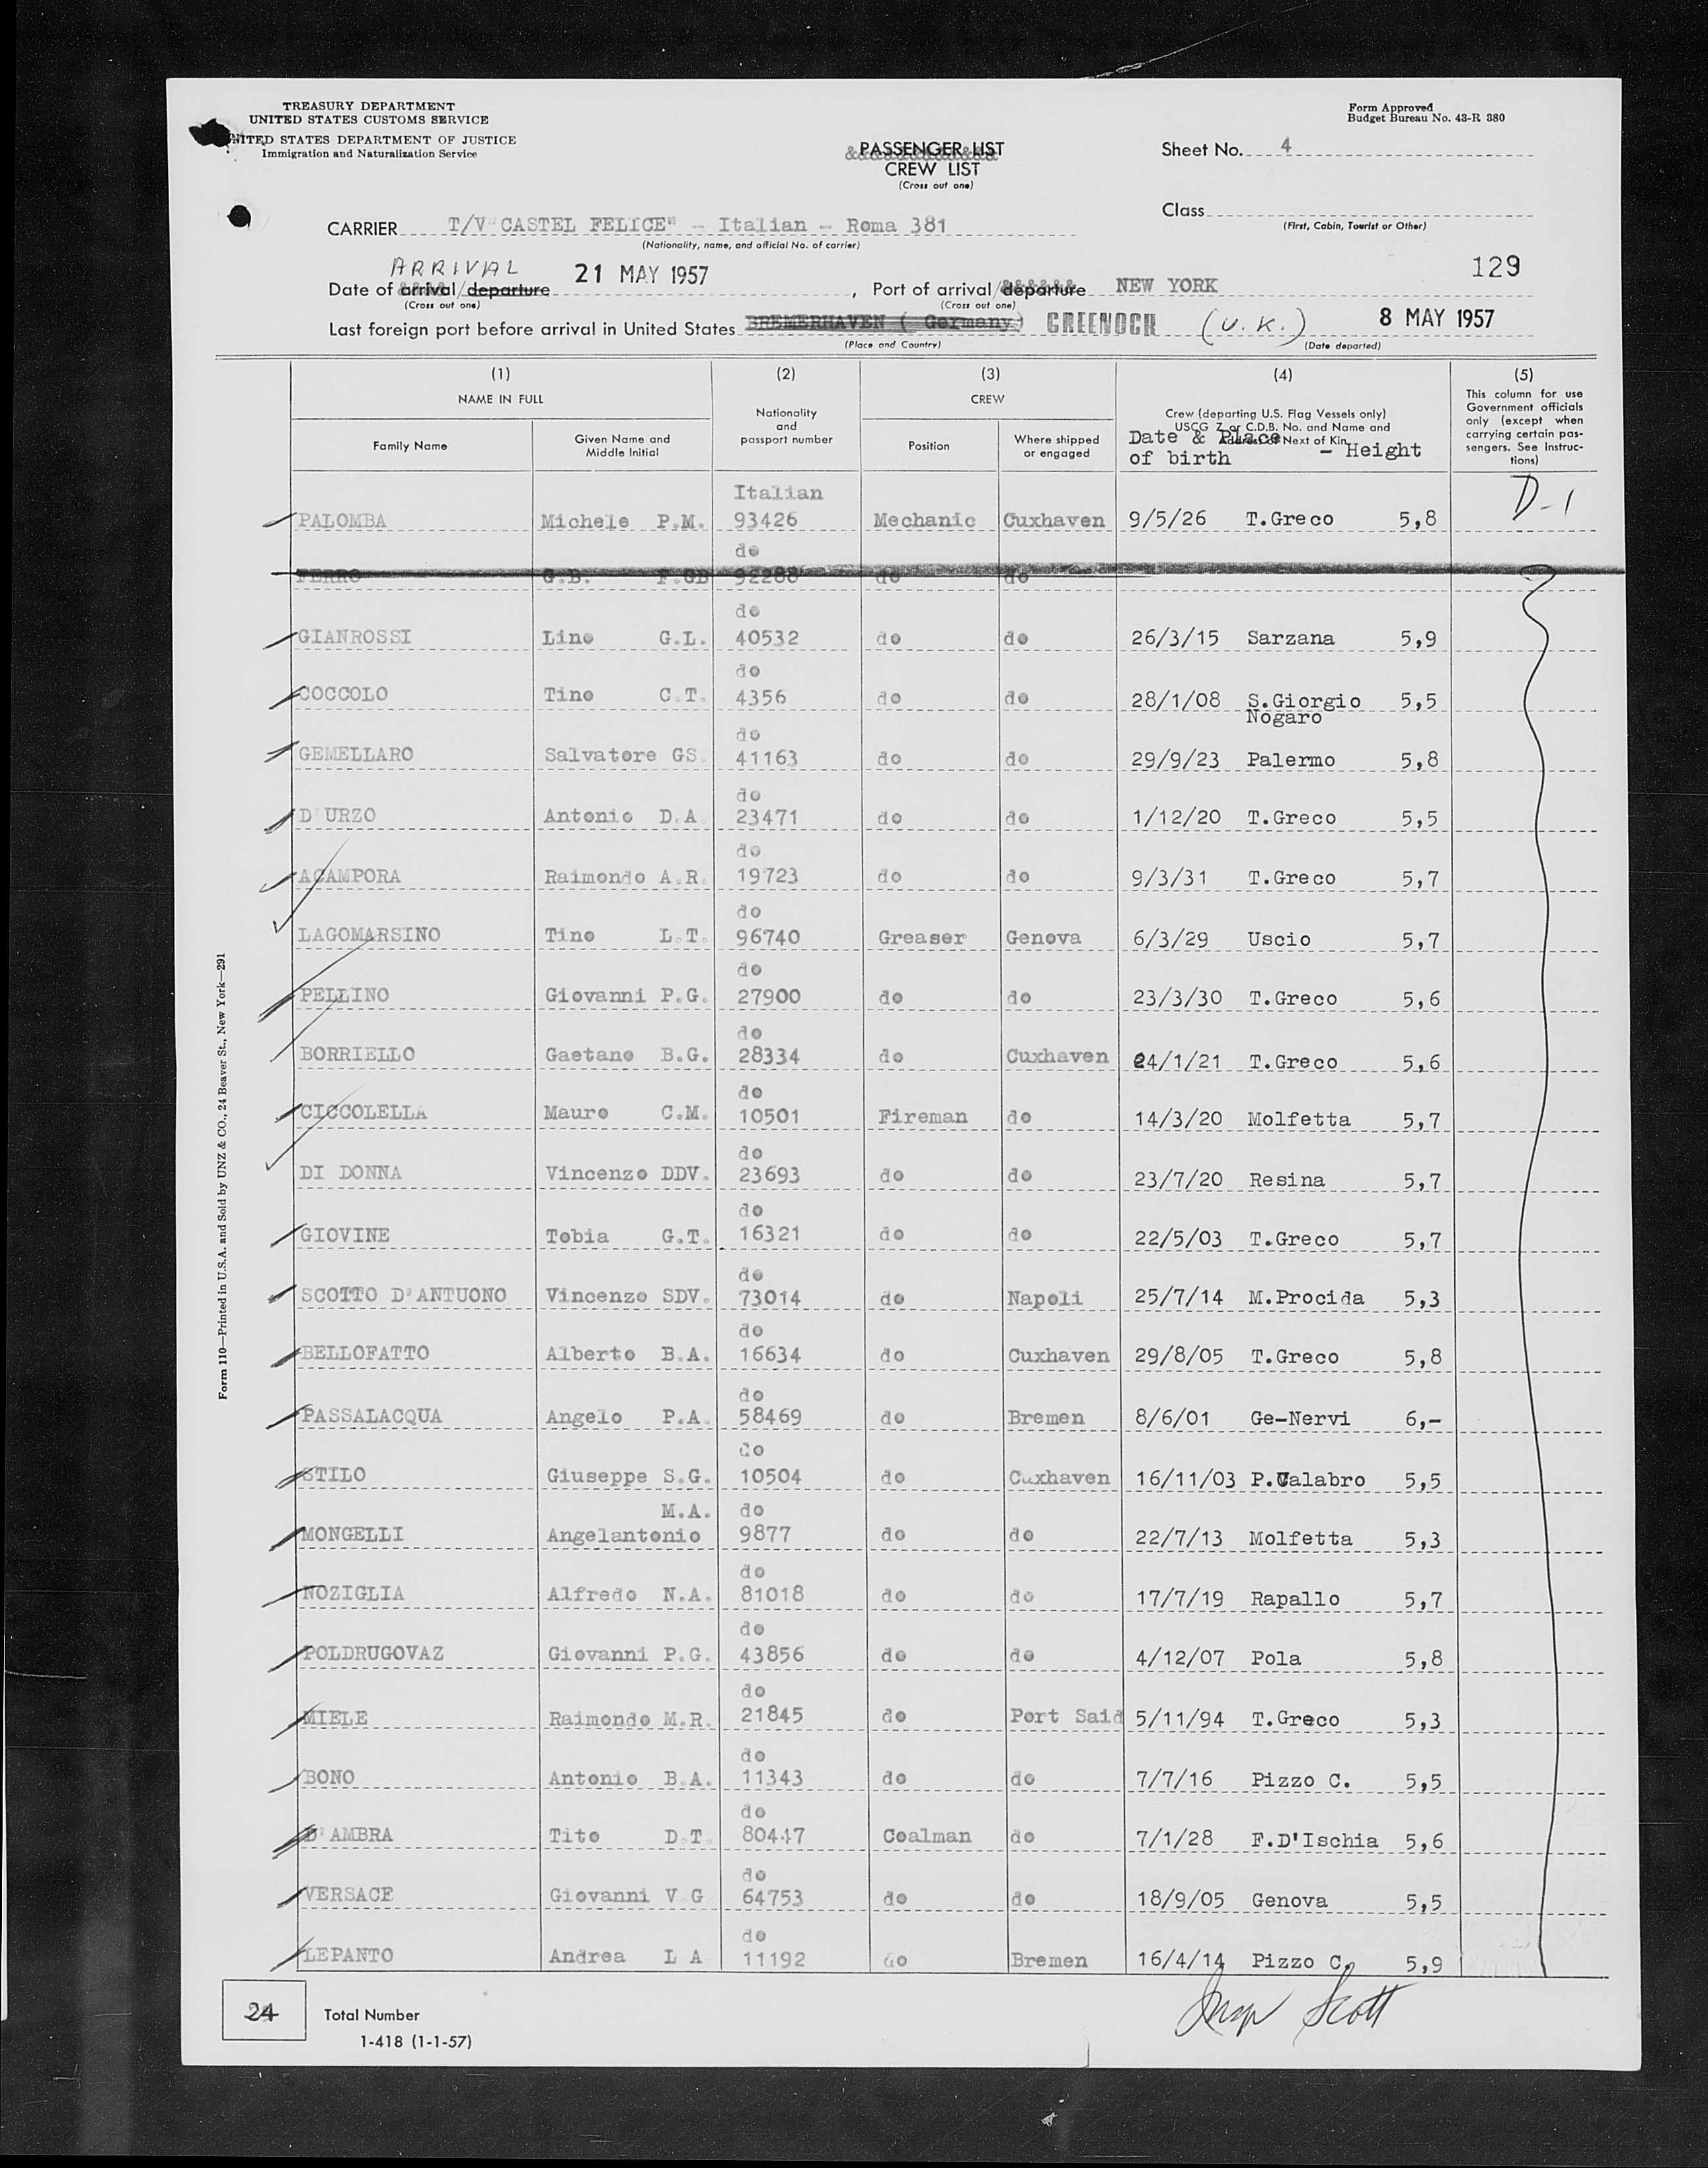 TREASURY DEPARTMENT
UNITED STATES CUSTOMS SERVICE
UNITED STATES DEPARTMENT OF JUSTICE
Immigration and Naturalization Service
Form Approved
Budget Bureau No. 43-R 380
PASSENGER LIST
CREW LIST
(Cross out one)
Sheet No. 4
Class
(First, Cabin, Tourist or Other)
CARRIER T/V "CASTEL FELICE" - Italian - Roma 381
(Nationality, name, and official No. of carrier)
129
ARRIVAL
Date of arrival/departure 21 MAY 1957, Port of arrival/departure NEW YORK
(Cross out one) (Cross out one)
Last foreign port before arrival in United States BREMERHAVEN ( Germany) GREENOCK (U.K.) 8 MAY 1957
(Place and Country) (Date departed)
(1) (2) (3) (4) (5)
NAME IN FULL Nationality and passport number CREW Crew (departing U.S. Flag Vessels only) USCG Z or C.D.B. No. and Name and Address of Next of Kin This column for use Government officials only (except when carrying certain passengers. See Instructions)
Family Name Given Name and Middle Initial Position Where shipped or engaged Date & Place of birth - Height
Italian
PALOMBA Michele P.M. 93426 Mechanic Cuxhaven 9/5/26 T.Greco 5,8 D-1
do
FERRO G.B. F.GB 92288 do do
do
GIANROSSI Lino G.L. 40532 do do 26/3/15 Sarzana 5,9
do
COCCOLO Tino C.T. 4356 do do 28/1/08 S.Giorgio Nogaro 5,5
do
GEMELLARO Salvatore GS. 41163 do do 29/9/23 Palermo 5,8
do
D'URZO Antonio D.A. 23471 do do 1/12/20 T.Greco 5,5
do
ACAMPORA Raimondo A.R. 19723 do do 9/3/31 T.Greco 5,7
do
LAGOMARSINO Tino L.T. 96740 Greaser Genova 6/3/29 Uscio 5,7
do
PELLINO Giovanni P.G. 27900 do do 23/3/30 T.Greco 5,6
do
BORRIELLO Gaetano B.G. 28334 do Cuxhaven 24/1/21 T.Greco 5,6
do
CICCOLELLA Mauro C.M. 10501 Fireman do 14/3/20 Molfetta 5,7
do
DI DONNA Vincenzo DDV. 23693 do do 23/7/20 Resina 5,7
do
GIOVINE Tobia G.T. 16321 do do 22/5/03 T.Greco 5,7
do
SCOTTO D'ANTUONO Vincenzo SDV. 73014 do Napoli 25/7/14 M.Procida 5,3
do
BELLOFATTO Alberto B.A. 16634 do Cuxhaven 29/8/05 T.Greco 5,8
do
PASSALACQUA Angelo P.A. 58469 do Bremen 8/6/01 Ge-Nervi 6,-
do
STILO Giuseppe S.G. 10504 do Cuxhaven 16/11/03 P.Calabro 5,5
M.A. do
MONGELLI Angelantonio 9877 do do 22/7/13 Molfetta 5,3
do
NOZIGLIA Alfredo N.A. 81018 do do 17/7/19 Rapallo 5,7
do
POLDRUGOVAZ Giovanni P.G. 43856 do do 4/12/07 Pola 5,8
do
MIELE Raimondo M.R. 21845 do Port Said 5/11/94 T.Greco 5,3
do
BONO Antonio B.A. 11343 do do 7/7/16 Pizzo C. 5,5
do
D'AMBRA Tito D.T. 80447 Coalman do 7/1/28 F.D'Ischia 5,6
do
VERSACE Giovanni V G 64753 do do 18/9/05 Genova 5,5
do
LEPANTO Andrea L A 11192 do Bremen 16/4/14 Pizzo C. 5,9
24 Total Number
1-418 (1-1-57)
Scott
Form 110—Printed in U.S.A. and Sold by UNZ & CO., 24 Beaver St., New York—291